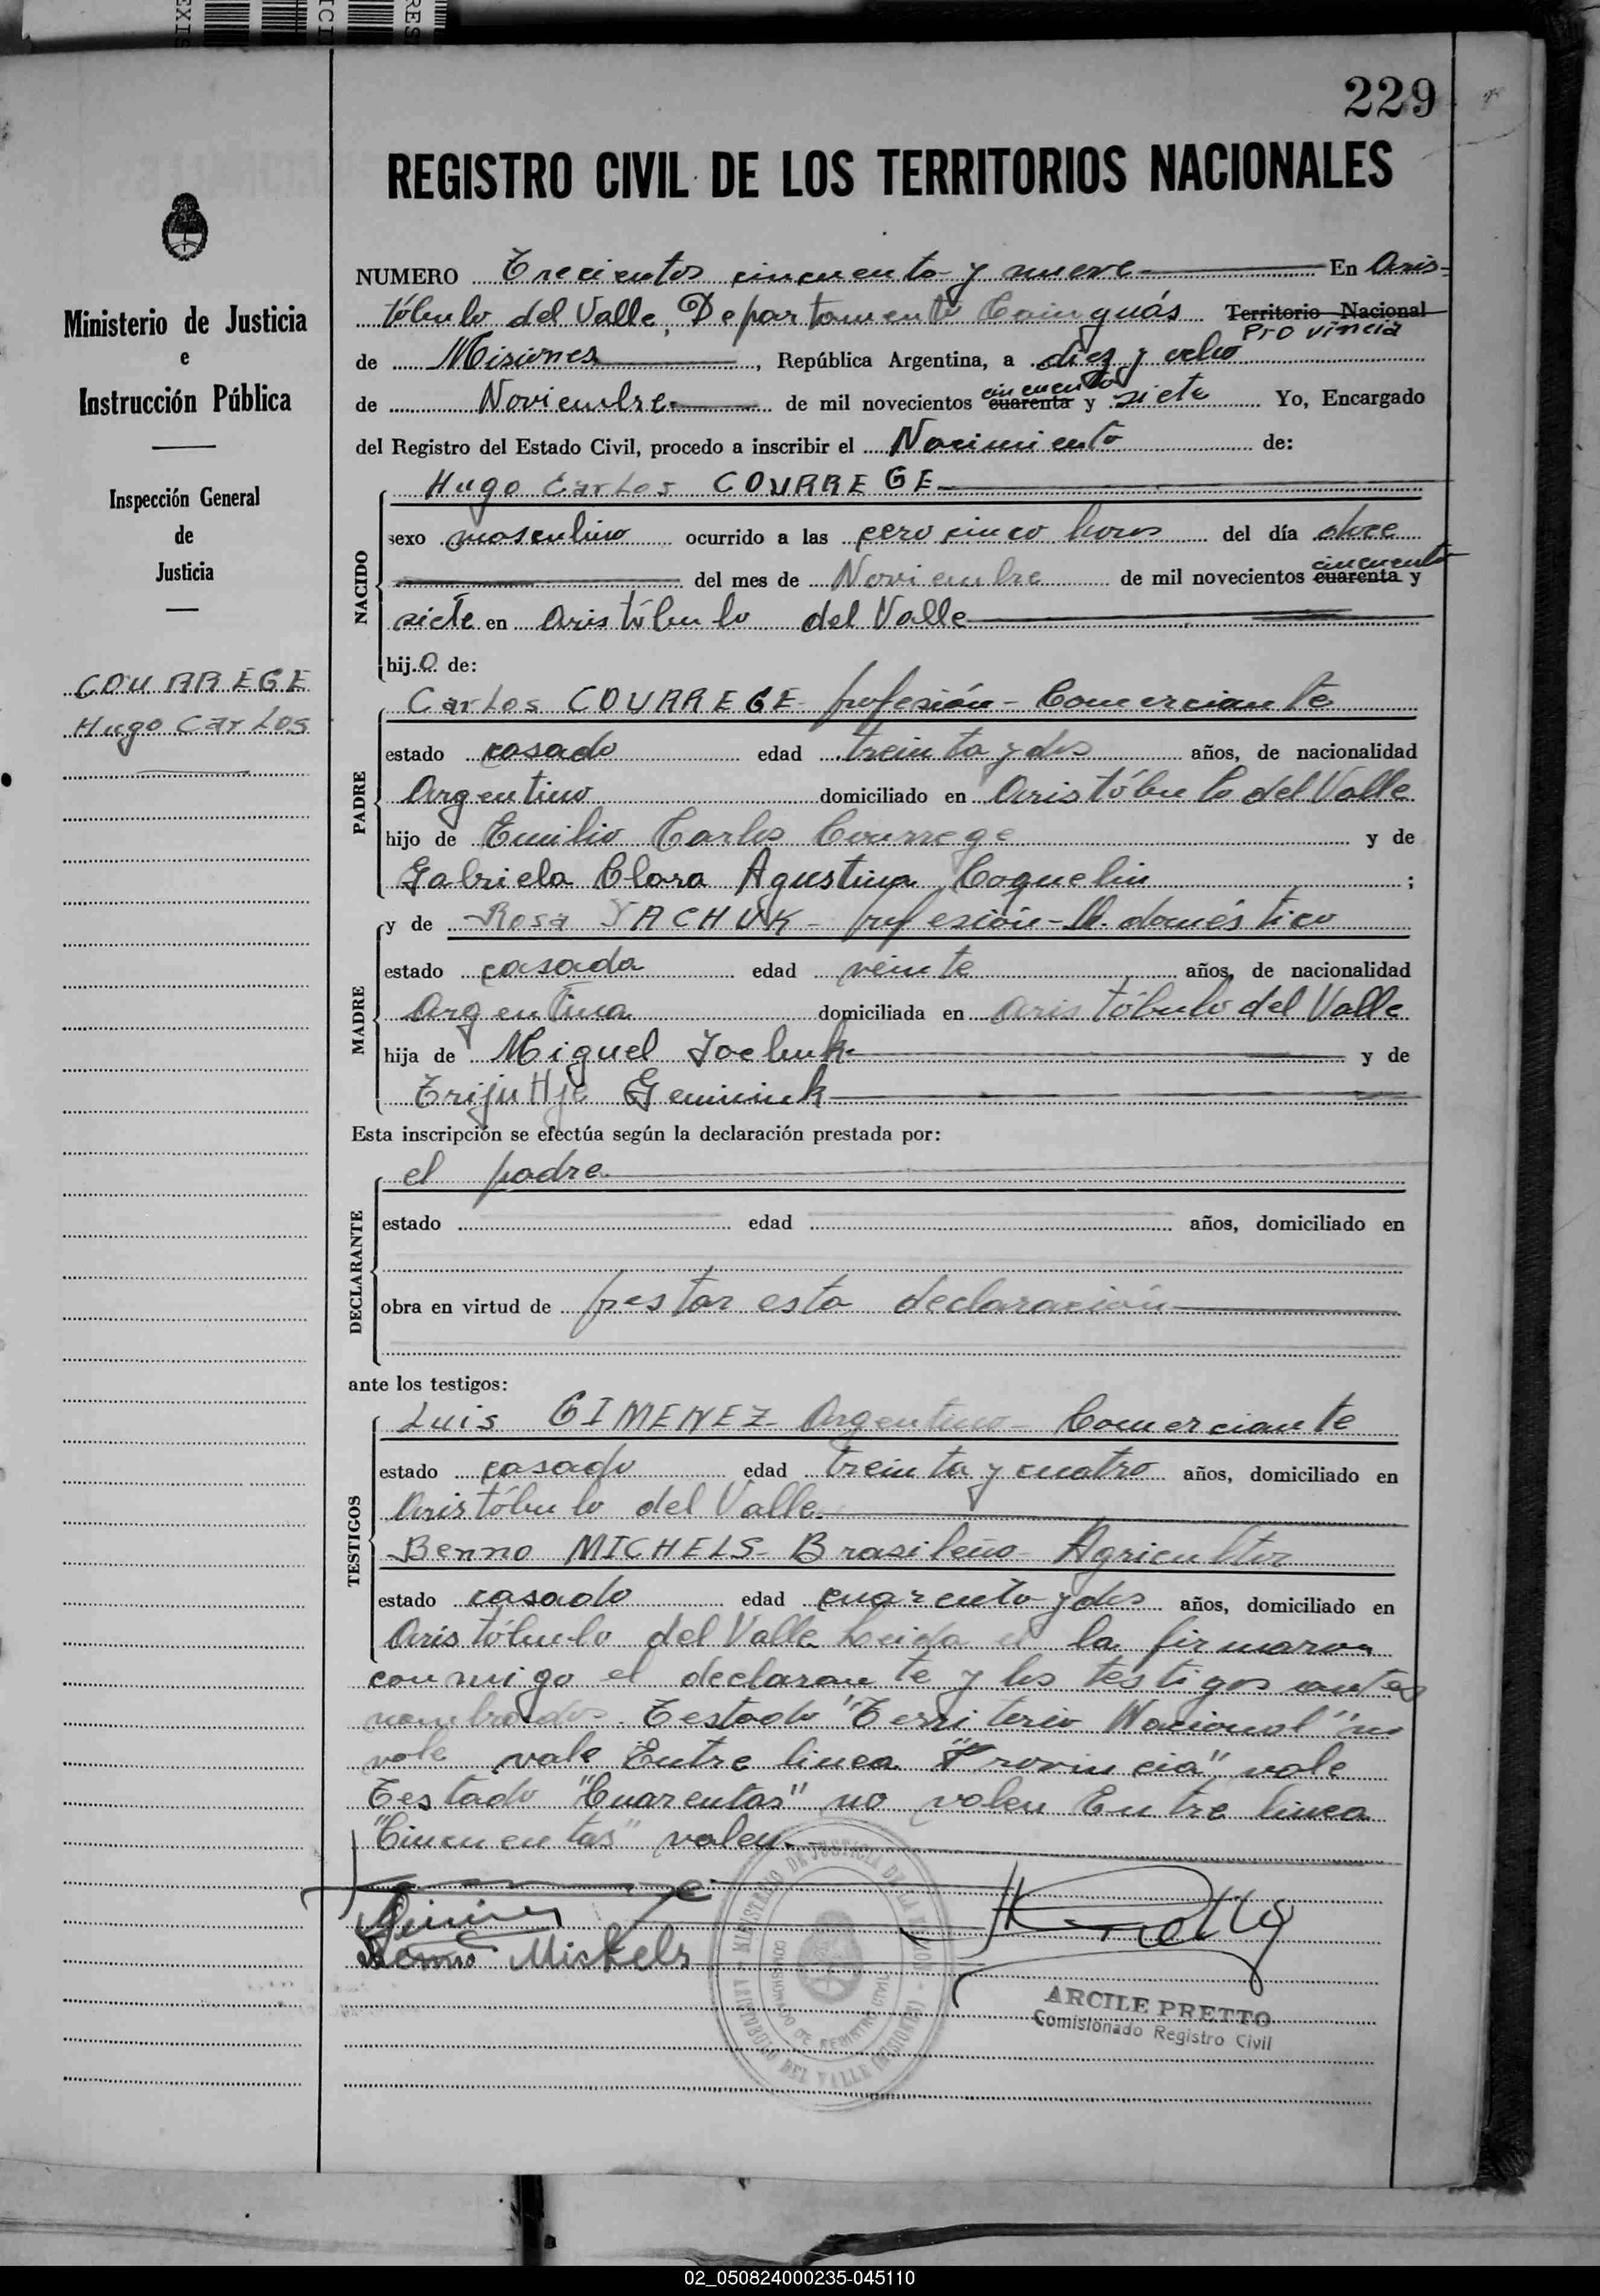 229
REGISTRO CIVIL DE LOS TERRITORIOS NACIONALES
Ministerio de Justicia
e
Instrucción Pública
Inspección General
de
Justicia
COURREGE
Hugo Carlos
NUMERO Trecientos cincuenta y nueve En Aris-
tóbulo del Valle, Departamento Cainguás Territorio Nacional
Provincia
de Misiones, República Argentina, a diez y ocho
cincuenta
de Noviembre de mil novecientos cuarenta y siete Yo, Encargado
del Registro del Estado Civil, procedo a inscribir el Nacimiento de:
Hugo Carlos COURREGE
NACIDO
sexo masculino ocurrido a las cero cinco horas del día doce
cincuenta
del mes de Noviembre de mil novecientos cuarenta y
siete en Aristóbulo del Valle
hijo de:
Carlos COURREGE- profesión- Comerciante
PADRE
estado casado edad treinta y dos años, de nacionalidad
Argentino domiciliado en Aristóbulo del Valle
hijo de Emilio Carlos Courrege y de
Gabriela Clara Agustina Coquelin ;
y de Rosa JACHUK- profesión- Q. doméstico
MADRE
estado casada edad veinte años, de nacionalidad
Argentina domiciliada en Aristóbulo del Valle
hija de Miguel Jachuk y de
Geminiuk
Esta inscripción se efectúa según la declaración prestada por:
el padre
DECLARANTE
estado edad años, domiciliado en
obra en virtud de prestar esta declaración
ante los testigos:
Luis GIMENEZ- Argentino- Comerciante
TESTIGOS
estado casado edad treinta y cuatro años, domiciliado en
Aristóbulo del Valle
Benno MICHELS- Brasileño- Agricultor
estado casado edad cuarenta y dos años, domiciliado en
Aristóbulo del Valle Leida el la firmaron
conmigo el declarante y los testigos antes
nombrados. Testado "Territorio Nacional" no
vale vale Entre linea "Provincia" vale
Testado "Cuarentas" no valen Entre linea
"Cincuentas" valen.-
Benno Michels
MINISTERIO DE JUSTICIA DE LA NACION
COMISIONADO DE REGISTRO CIVIL
ARISTOBULO DEL VALLE (MISIONES)
ARCILE PRETTO
Comisionado Registro Civil
02_050824000235-045110